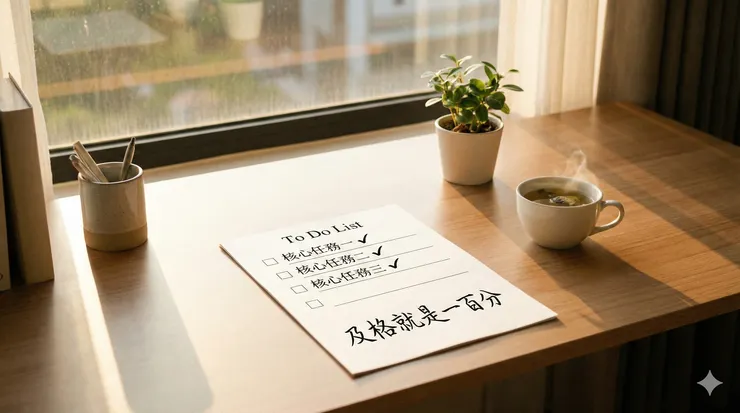 To Do List
核心任務一 ✓
核心任務二 ✓
核心任務三 ✓
及格就是一百分